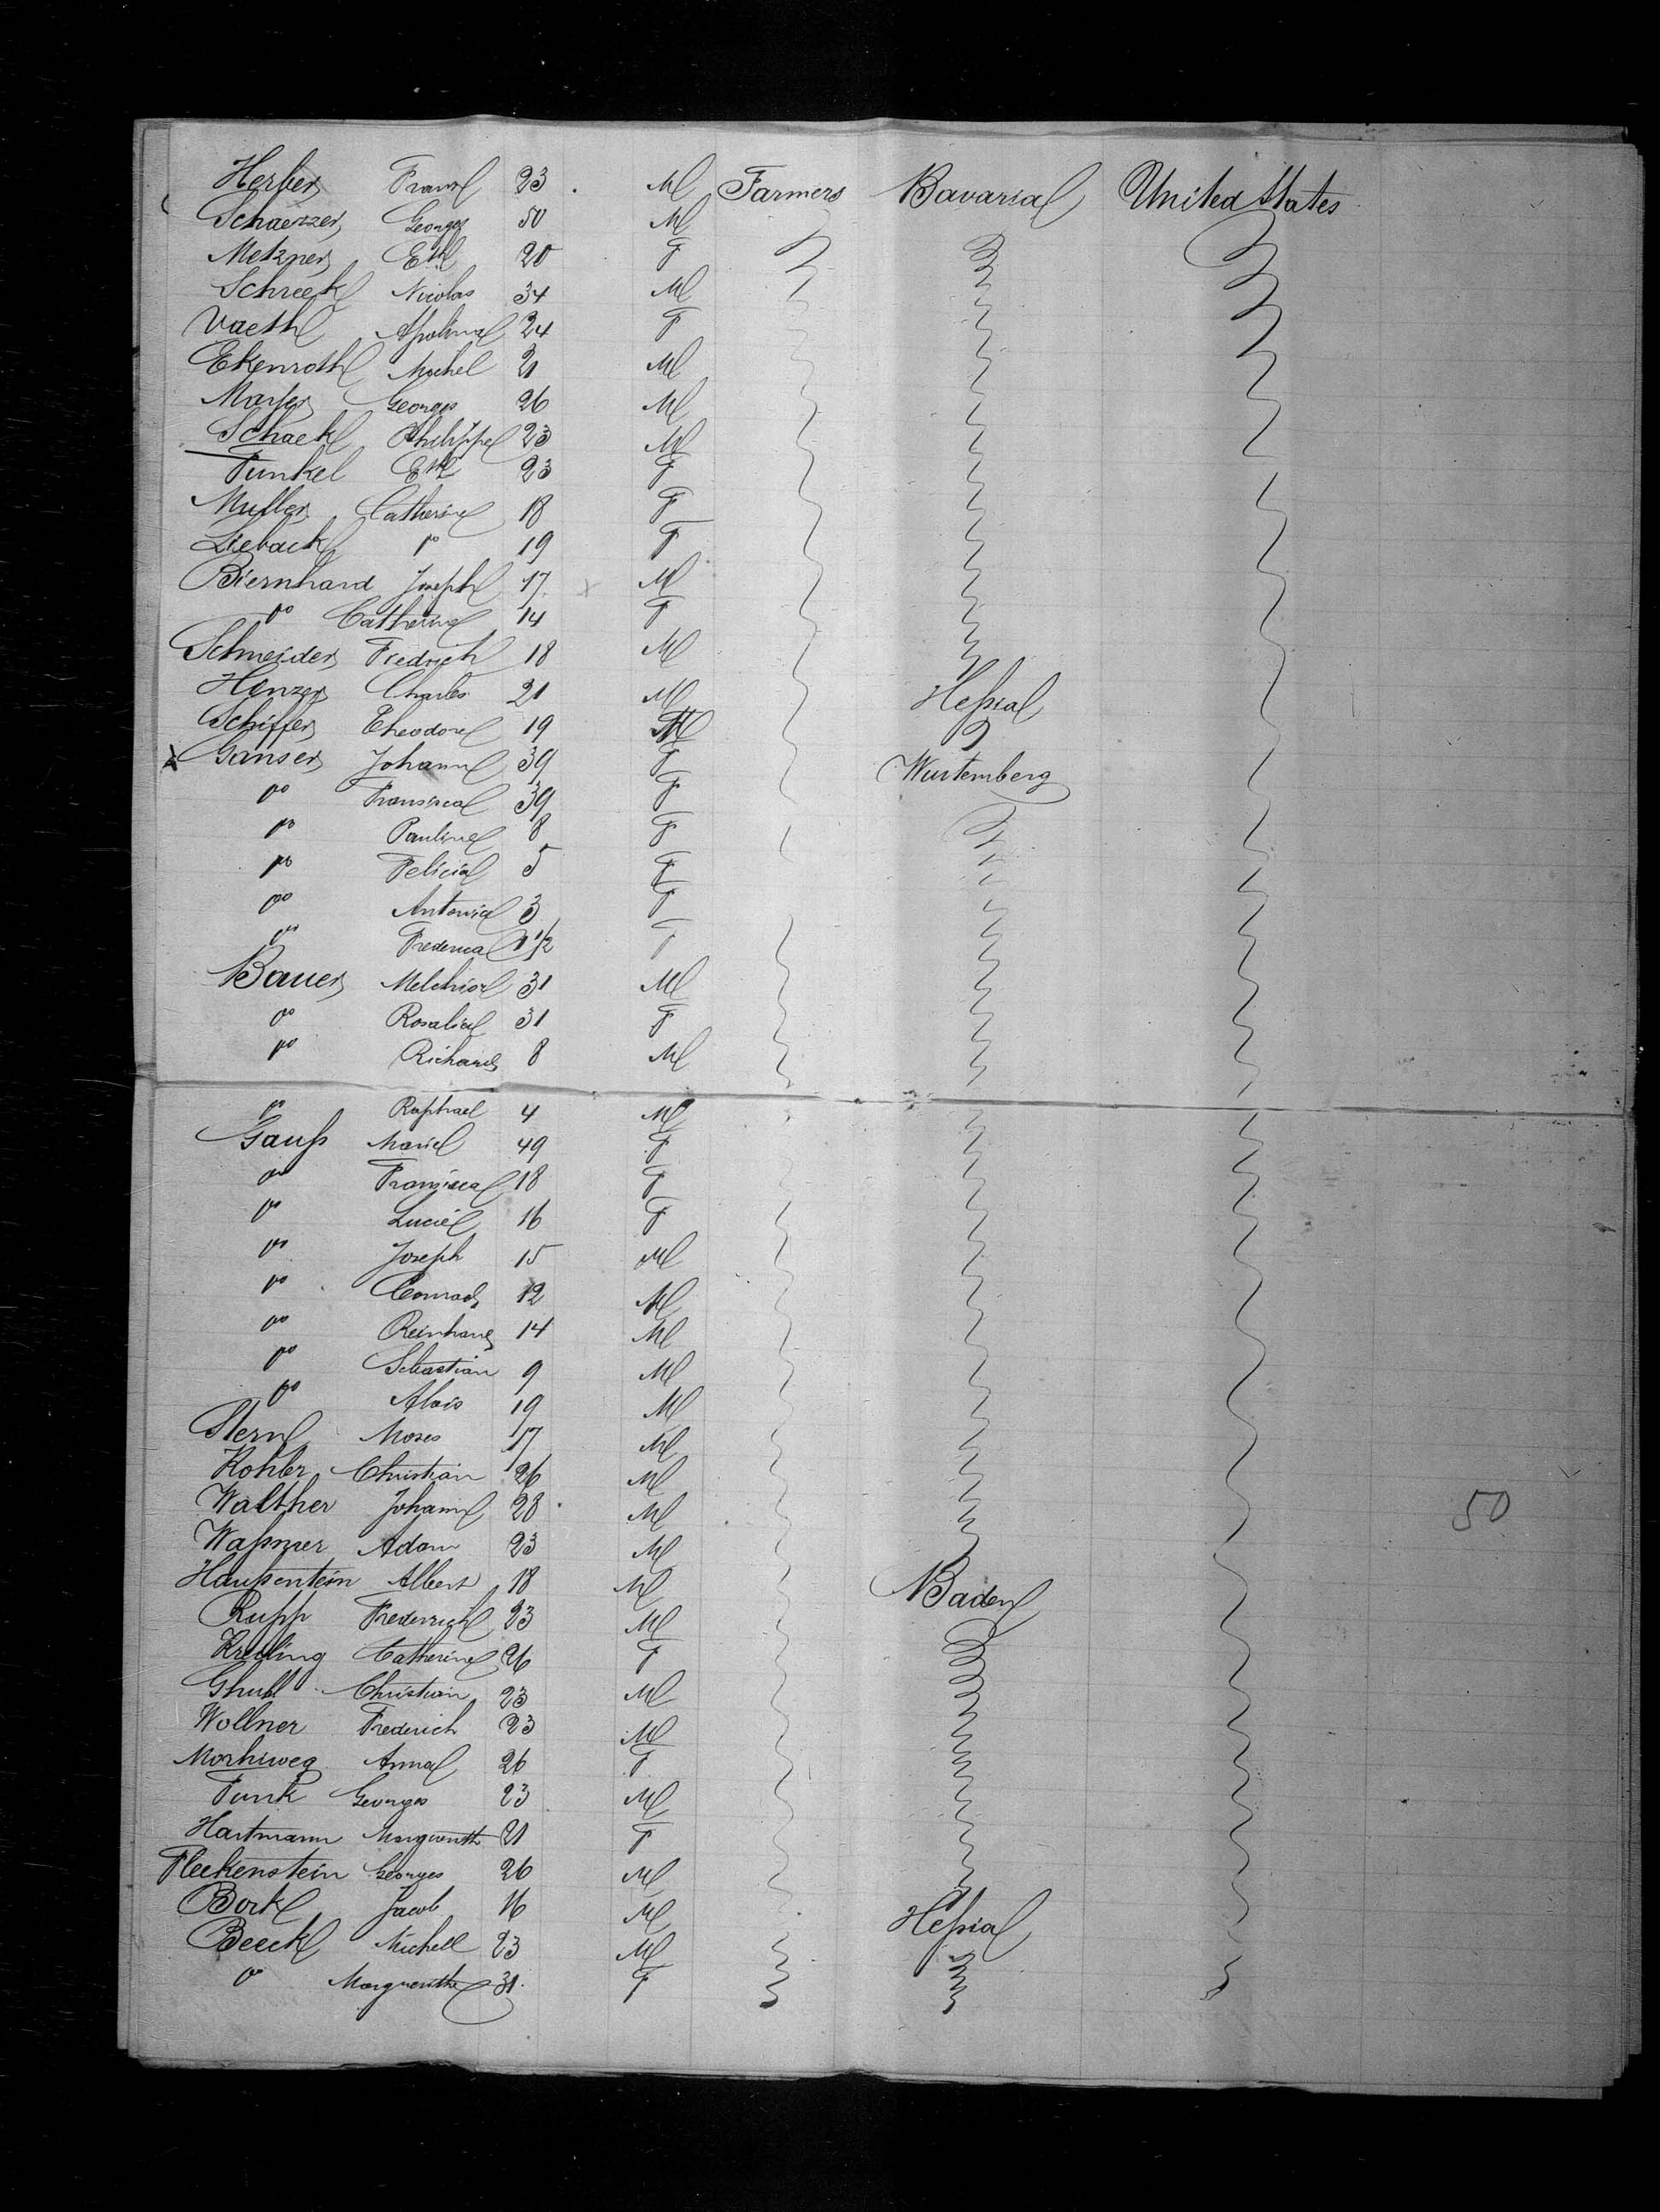 Herber Franz 23 M Farmers Bavaria United States
Schaezzer Georges 50 M
Metzner Eth 20 F
Schreck Nicolas 34 M
Vaeth Apolina 24 F
Ekenroth Michel 21 M
Georges 26 M
Schack Philippe 23 M
Funkel Eth 23 F
Muller Catherine 18 F
Lieback do 19 F
Biernhard Joseph 17 M
do Catherine 14 F
Schneider Fredrich 18 M
Henzer Charles 21 M Heßia
Schiffer Theodore 19 M
Ganser Johann 39 F Wurtemberg
do Fransisca 39 F
do Pauline 8 F
do Felicia 5 F
do Antonia 3 F
do Frederica 1 1/2 F
Bauer Melchior 31 M
do Rosalie 31 F
do Richard 8 M
do Raphael 4 M
Gauß Marie 49 F
do Franzisca 18 F
do Lucie 16 F
do Joseph 15 M
do Conrad 12 M
do Reinhard 14 M
do Sebastian 9 M
do Alois 19 M
Stern Moses 17 M
Kohler Christian 26 M
Walther Johann 28 M 50
Waßmer Adam 23 M
Haußentein Albert 18 M Baden
Rupp Frederrich 23 M
Kreiling Catherine 26 F
Christian 23 M
Wollner Frederich 23 M
Morhiweg Anna 26 F
Funk Georges 23 M
Hartmann Marguerith 21 F
Fleckenstein Georges 26 M
Bork Jacob 16 M Heßia
Beeck Michell 23 M
do Marguerithe 31 F